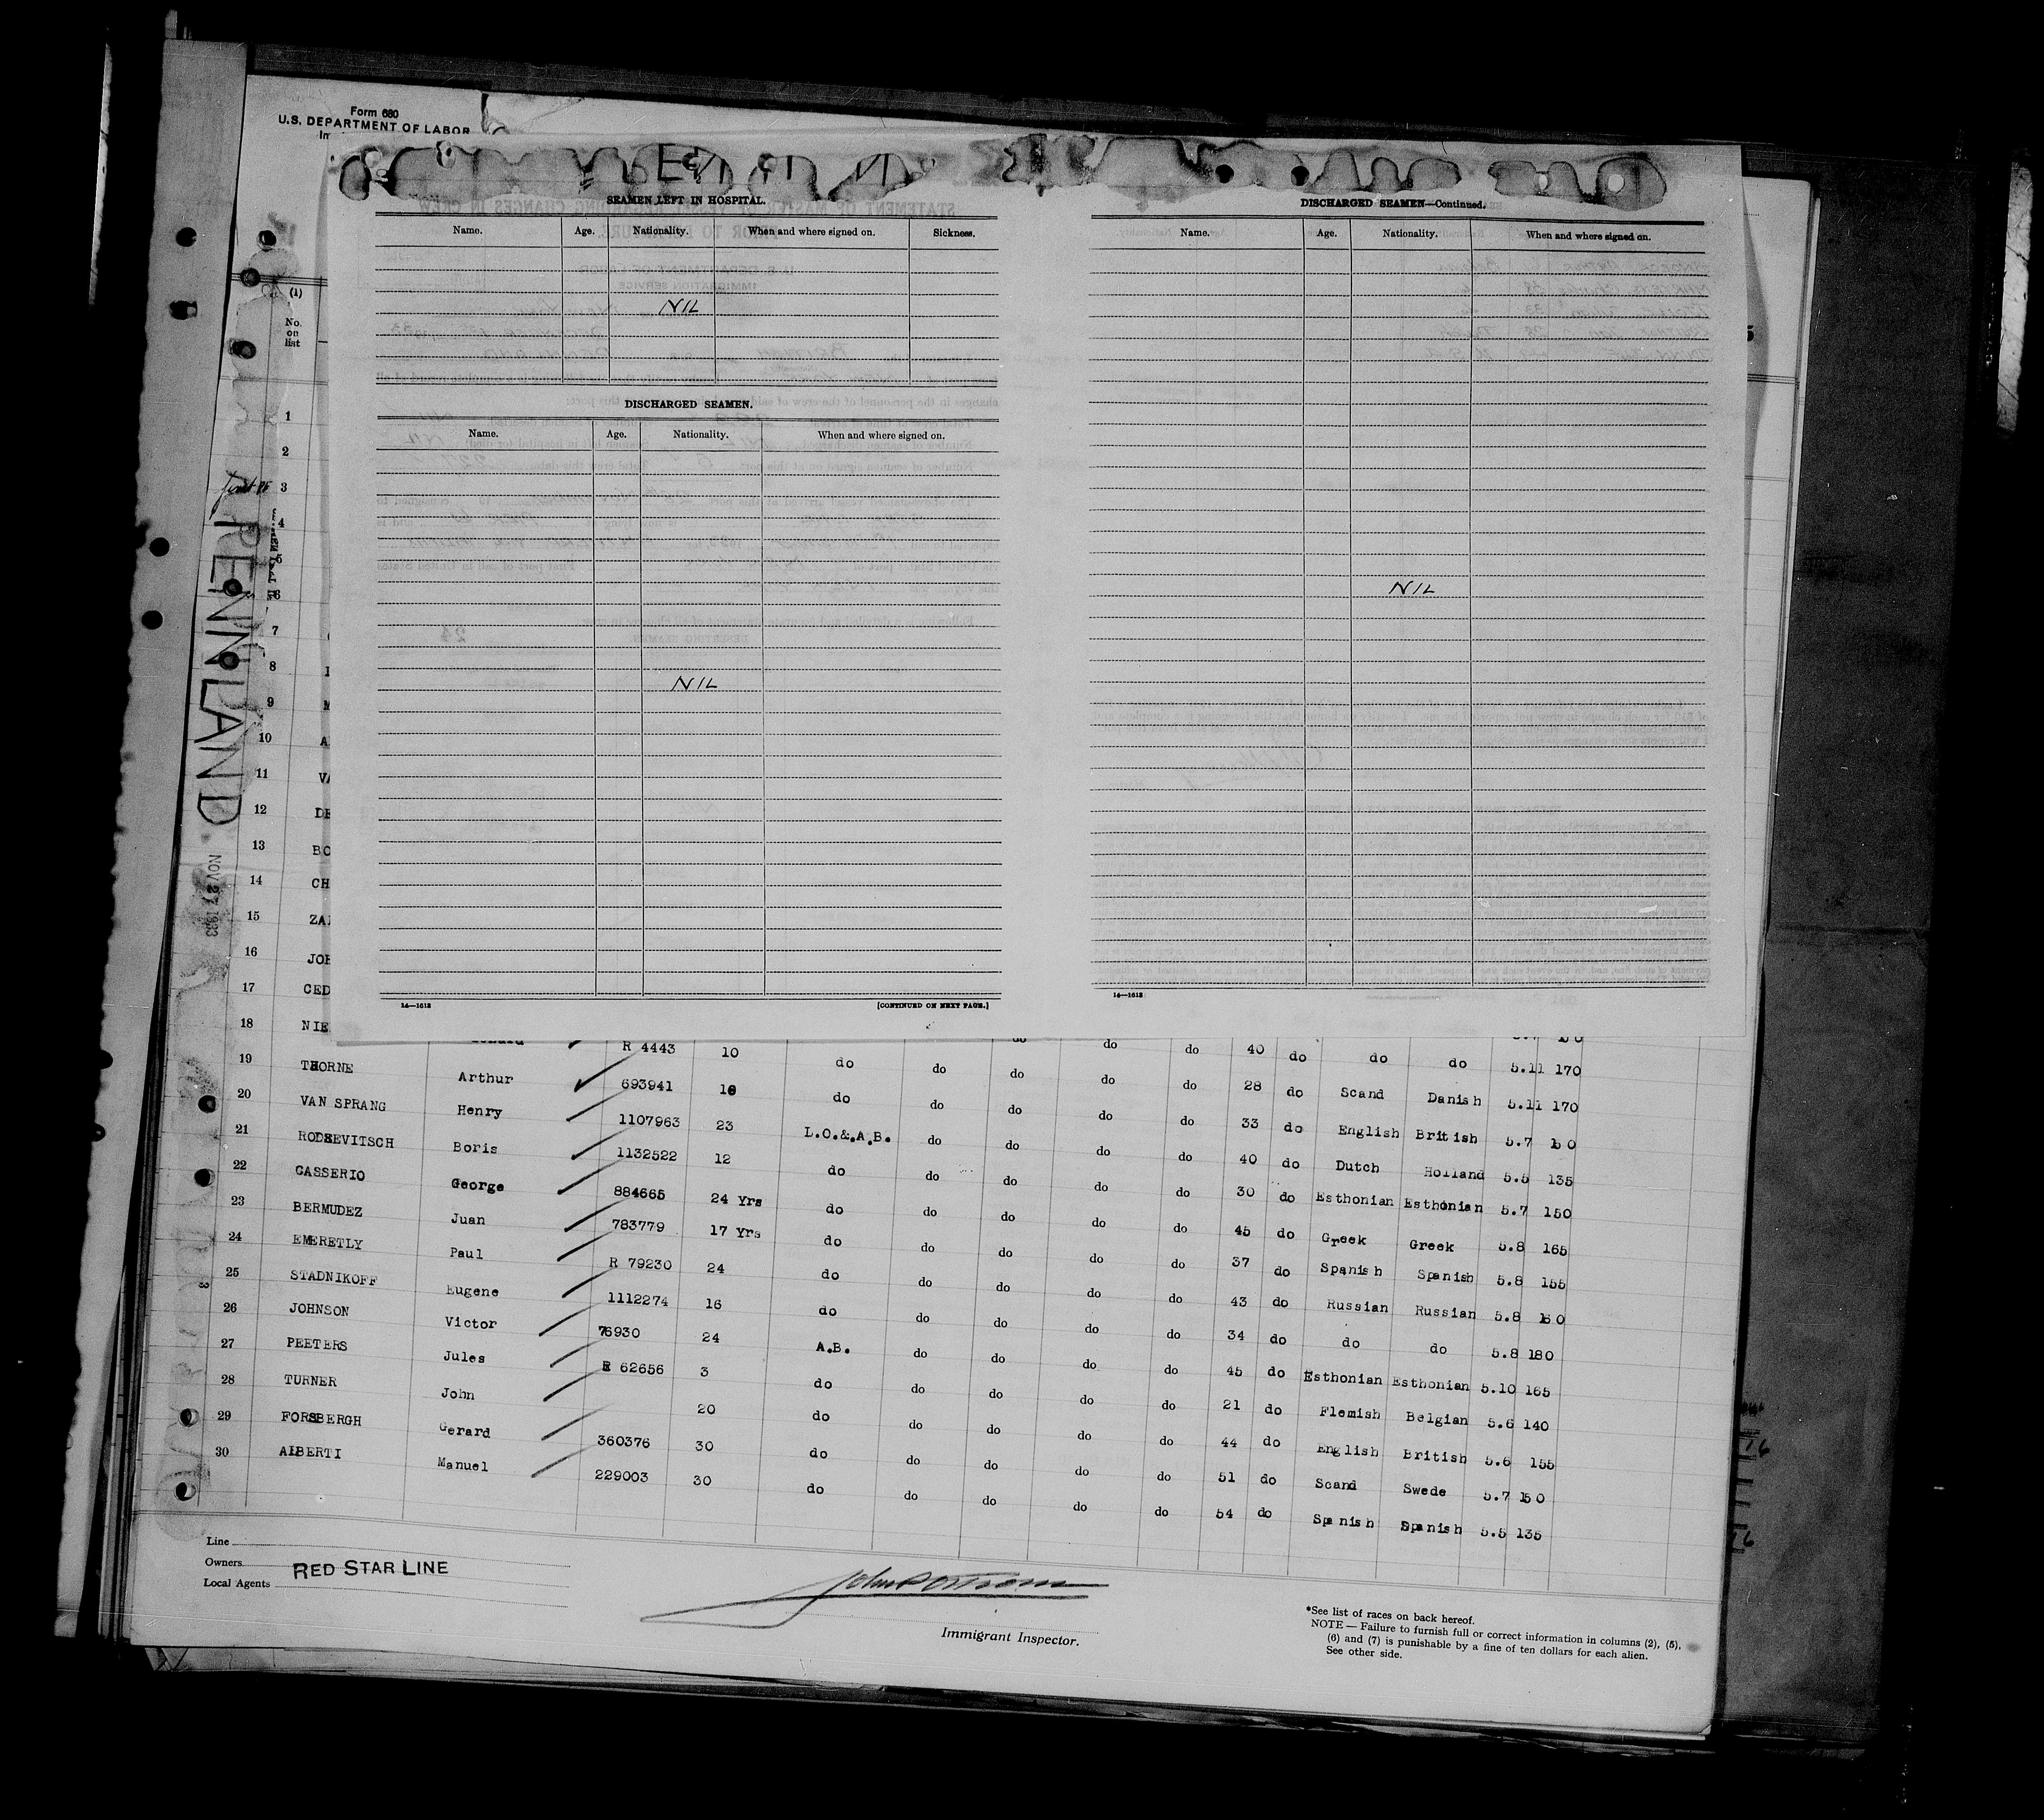 Form 680
U.S. DEPARTMENT OF LABOR
SEAMEN LEFT IN HOSPITAL.
Name. Age. Nationality. When and where signed on. Sickness.
NIL
DISCHARGED SEAMEN.
Name. Age. Nationality. When and where signed on.
NIL
14—1613 [CONTINUED ON NEXT PAGE.]
DISCHARGED SEAMEN—Continued.
Name. Age. Nationality. When and where signed on.
NIL
14—1613
RENNLAND
NOV 27 1933
(1)
No. on list
1
2
3
4
5
6
7
8
9
10
11 VA
12 DE
13 BO
14 CH
15 ZA
16 JOH
17 CED 40 do do do 5.11 170
18 NIE R 4443 10 do do do do do 28 do Scand Danish 5.11 170
19 THORNE Arthur 693941 18 do do do do do 33 do English British 5.7 150
20 VAN SPRANG Henry 1107963 23 L.O.&.A.B. do do do do 40 do Dutch Holland 5.5 135
21 RODSEVITSCH Boris 1132522 12 do do do do do 30 do Esthonian Esthonian 5.7 150
22 CASSERIO George 884665 24 Yrs do do do do do 45 do Greek Greek 5.8 165
23 BERMUDEZ Juan 783779 17 Yrs do do do do do 37 do Spanish Spanish 5.8 155
24 EMERETLY Paul R 79230 24 do do do do do 43 do Russian Russian 5.8 160
25 STADNIKOFF Eugene 1112274 16 do do do do do 34 do do do 5.8 180
26 JOHNSON Victor 76930 24 A.B. do do do do 45 do Esthonian Esthonian 5.10 165
27 PEETERS Jules R 62656 3 do do do do do 21 do Flemish Belgian 5.6 140
28 TURNER John 20 do do do do do 44 do English British 5.6 155
29 FORSBERGH Gerard 360376 30 do do do do do 51 do Scand Swede 5.7 150
30 ALBERTI Manuel 229003 30 do do do do do 54 do Spanish Spanish 5.5 135
Line
Owners
Local Agents RED STAR LINE
Immigrant Inspector.
*See list of races on back hereof.
NOTE — Failure to furnish full or correct information in columns (2), (5),
(6) and (7) is punishable by a fine of ten dollars for each alien.
See other side.